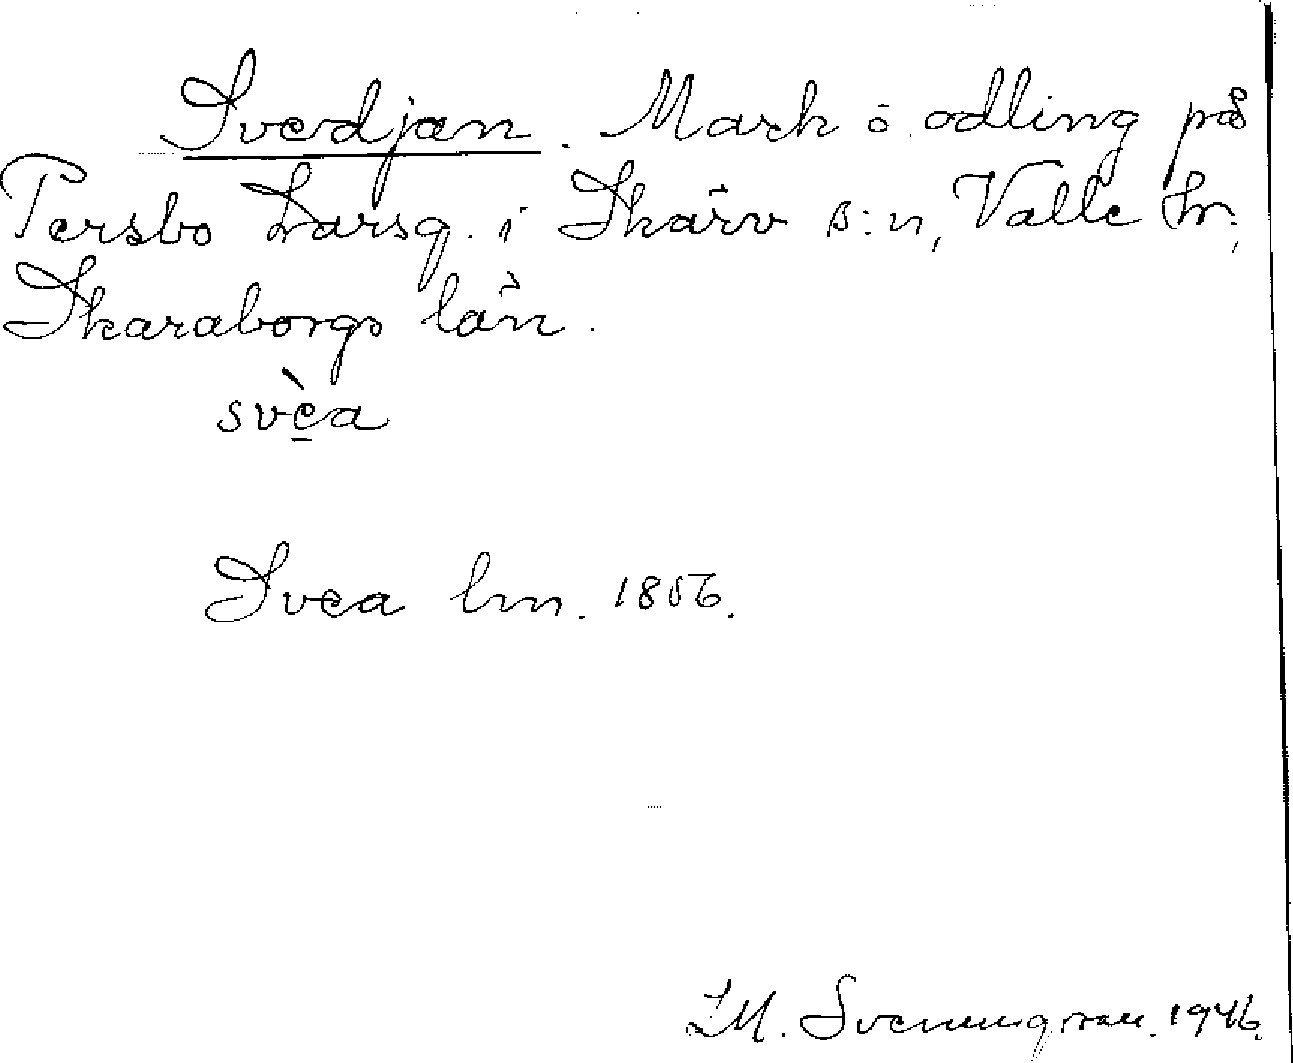 Svedjan. Mark o. odling på
Persbo Larsg. i Skärv s:n, Valle hr,
Skaraborgs län.
svèa
Svea lm. 1856.
I.M. Svennungsson. 1946.